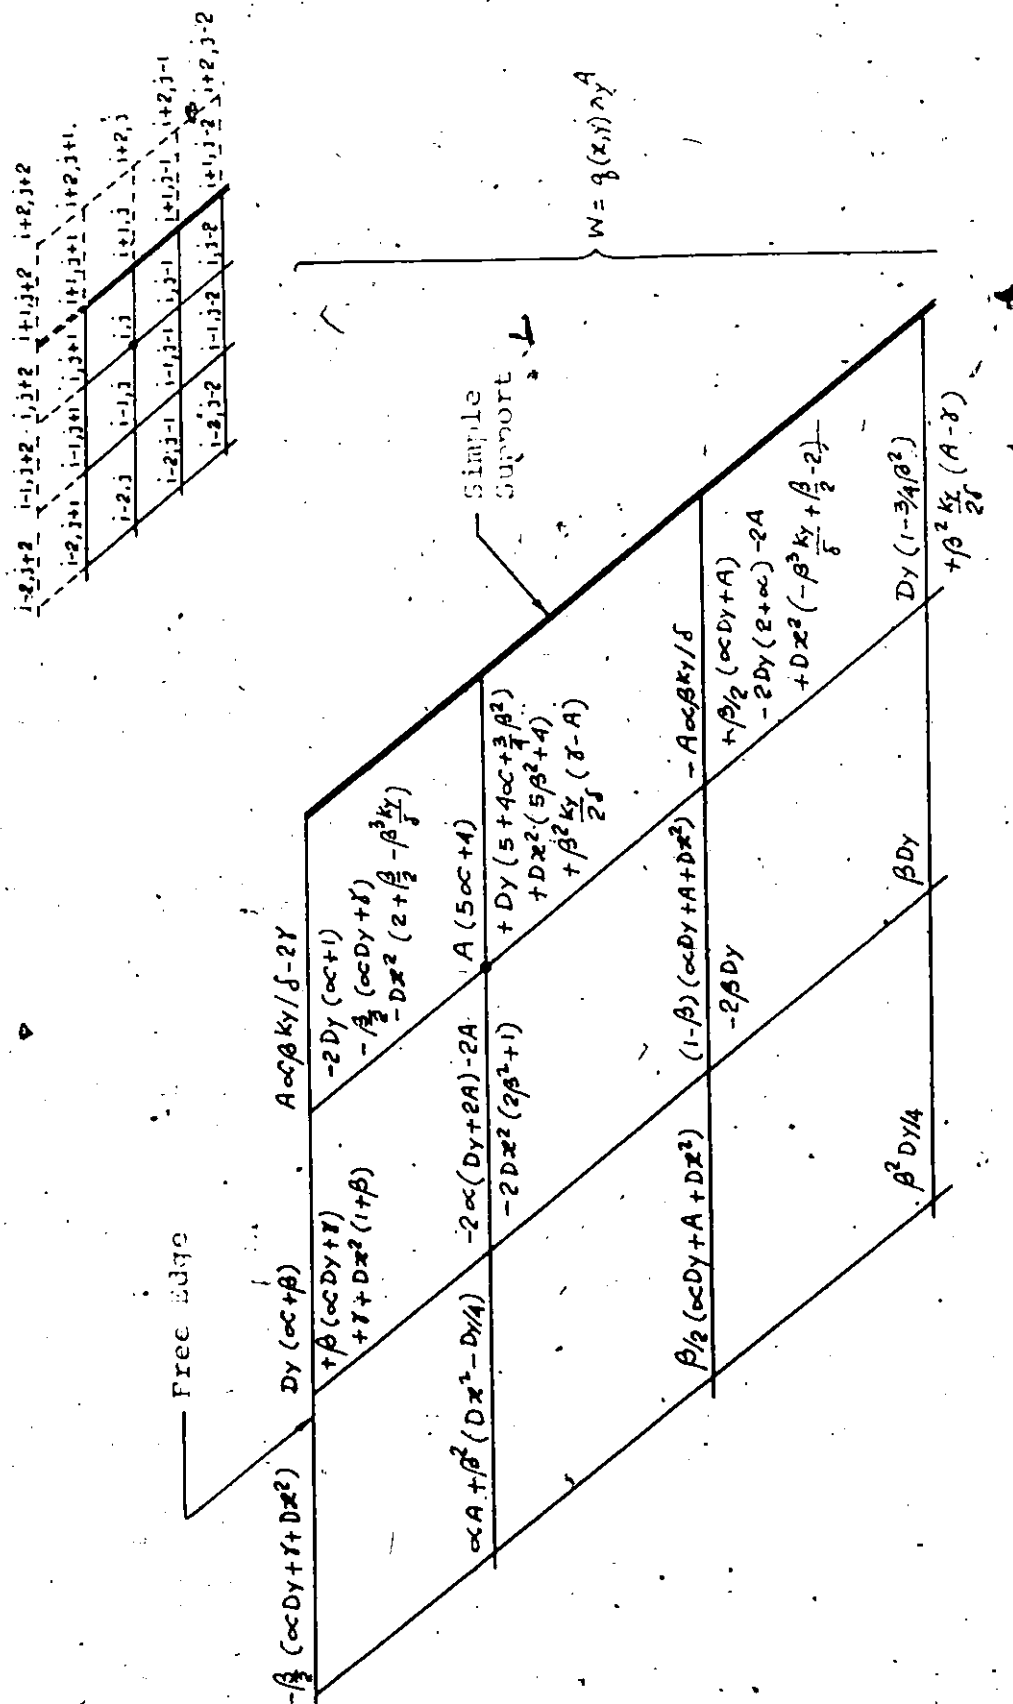 i-2,j+2 i-1,j+2 i,j+2 i+1,j+2 i+2,j+2
i-2,j+1 i-1,j+1 i,j+1 i+1,j+1 i+2,j+1
i-2,j i-1,j i,j i+1,j i+2,j
i-2,j-1 i-1,j-1 i,j-1 i+1,j-1 i+2,j-1
i-2,j-2 i-1,j-2 i,j-2 i+1,j-2 i+2,j-2
Free Edge
Simple
Support
W = q(x,y) λy⁴
-β/2 (αDy+γ+Dx²)
Dy (α+β)
+β (αDy+γ)
+γ+Dx² (1+β)
Aαβky/δ-2γ
-2Dy (α+1)
-β/2 (αDy+γ)
-Dx² (2+β/2-β³ky/δ)
αA+β² (Dx²-Dy/4)
-2α(Dy+2A)-2A
-2Dx² (2β²+1)
A (5α+4)
+Dy (5+4α+3/4β²)
+Dx² (5β²+4)
+β² ky/2δ (γ-A)
β/2 (αDy+A+Dx²)
(1-β)(αDy+A+Dx²)
-2βDy
-Aαβky/δ
+β/2 (αDy+A)
-2Dy (2+α)-2A
+Dx² (-β³ky/δ+β/2-2)
β²Dy/4
βDy
Dy (1-3/4β²)
+β² ky/2δ (A-γ)